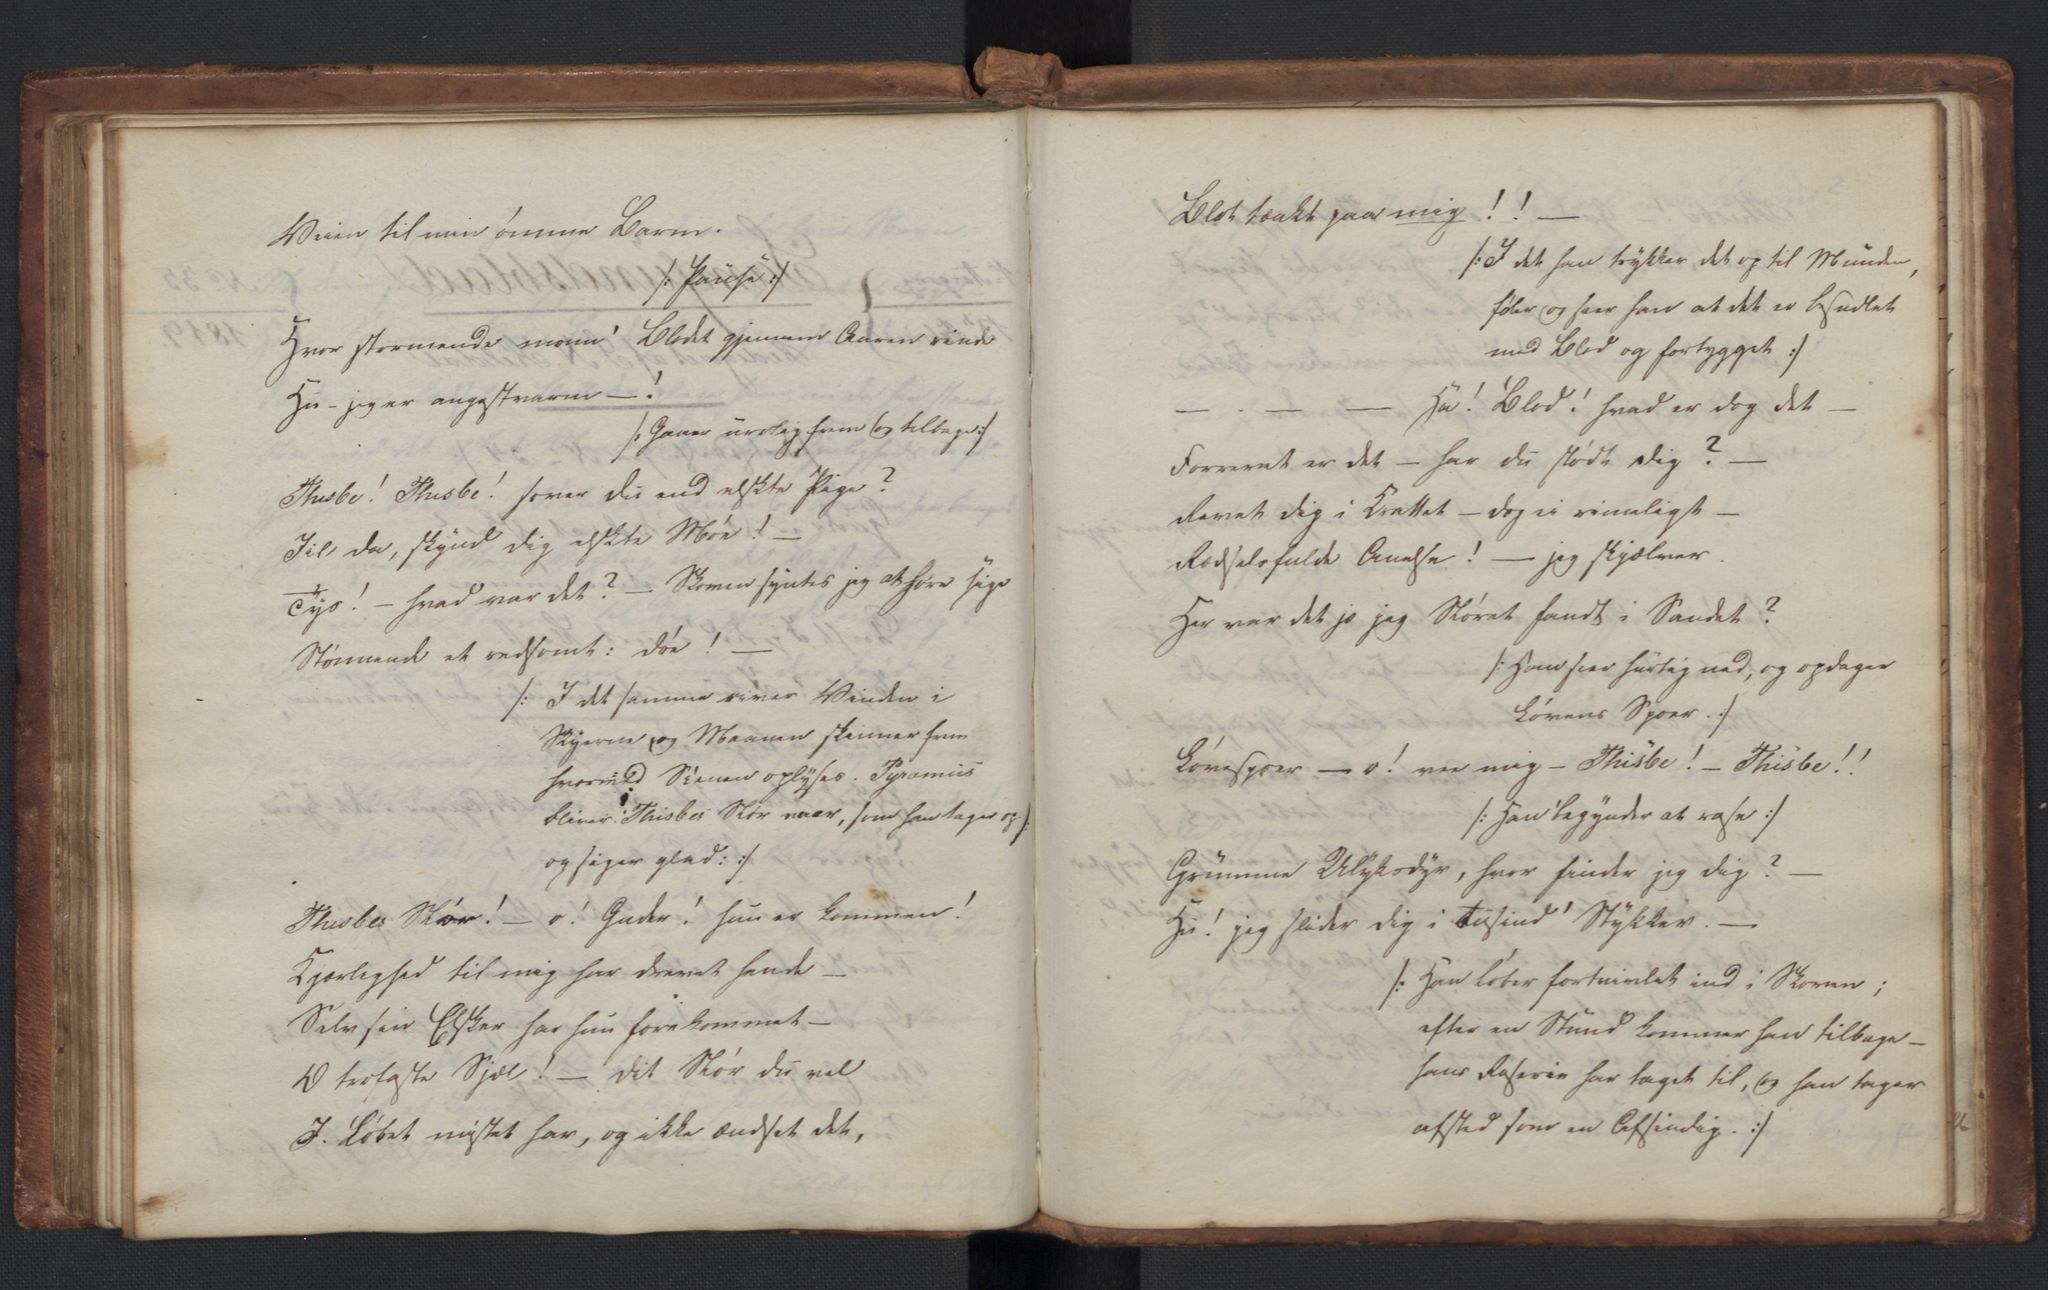 Veien til min ømme Barm.
/: Pause :/
Hvor stormende monn' Blodet gjennem Aaren rinde
Hu – jeg er angestvarm – !
/: Gaaer urolig frem og tilbage :/
Thisbe! Thisbe! sover du end elskte Pige?
Iil da, skynd dig elskte Møe! –
Tys! – hvad var det? – Skoven syntes jeg at høre sige
Stønnende et rædsomt: döe! –
/: I det samme river Vinden i
Skyerne og Maanen skinner frem
hvorved Scenen oplyses. Pyramus
bliver Thisbes Slør vaer, som han tager op
og siger glad: :/
Thisbes Slør! – o! Guder! hun er kommen!
Kjærlighed til mig har drevet hende –
Selv sin Elsker har hun forekommet –
O trofaste Sjæl! – dit Slør du vel
I Løbet mistet har, og ikke ændset det,
Blot tænkt paa mig !! –
/: I det han trykker det op til Munden,
føler og seer han at det er besudlet
med Blod og fortygget :/
– . – – Ha! Blod! hvad er dog det –
Forrevet er det – har du stødt dig? –
Revet dig i Krattet – dog ei rimeligt –
Rædselsfulde Anelse! – jeg skjælver.
Her var det jo jeg Sløret fandt i Sandet?
/: Han seer hurtig ned, og opdager
Løvens Spoer. :/
Løvespoer – o! vee mig – Thisbe! – Thisbe!!
/: Han begynder at rase :/
Grumme Ulyksdyr, hvor finder jeg dig? –
Hu! jeg slider dig i tusind' Stykker. –
/: Han løber fortvivlet ind i Skoven;
efter en Stund kommer han tilbage –
hans Raserie har taget til, og han tager
afsted som en Afsindig. :/